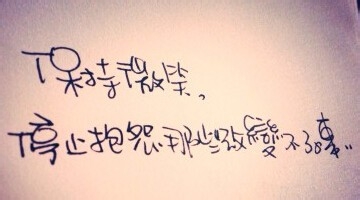 保持微笑。
停止抱怨那些改變不了的事..